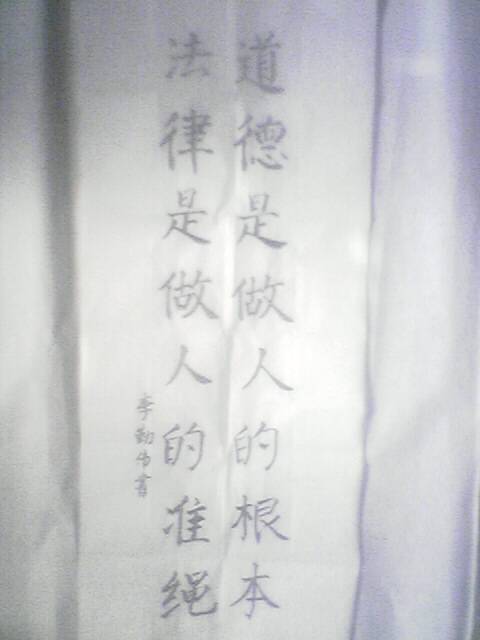 道德是做人的根本
法律是做人的准绳
李勤伟书